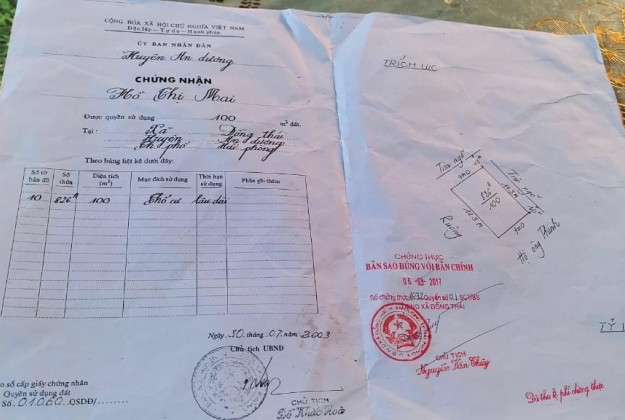 CỘNG HÒA XÃ HỘI CHỦ NGHĨA VIỆT NAM
Độc lập - Tự do - Hạnh phúc
ỦY BAN NHÂN DÂN
Huyện An dương
CHỨNG NHẬN
Hồ Thị Mai
Được quyền sử dụng 100 m² đất.
Tại: Xã Đồng thái
Huyện An dương
Thành phố Hải phòng
Theo bảng liệt kê dưới đây:
Số tờ bản đồ Số thửa Diện tích (m²) Mục đích sử dụng Thời hạn sử dụng Phần ghi thêm
10 826 100 Thổ cư lâu dài
Ngày 30 tháng 07 năm 2003
Chủ tịch UBND
CHỦ TỊCH
Đỗ Khắc Hoà
o số cấp giấy chứng nhận
Quyền sử dụng đất
Số 01060 QSDĐ/
TRÍCH LỤC
Ruộng
826
100
11.5m
Hộ ông Thinh
CHỨNG THỰC
BẢN SAO ĐÚNG VỚI BẢN CHÍNH
06 -03- 2017
UBND XÃ ĐỒNG THÁI
CHỦ TỊCH
Nguyễn Văn Thủy
TỶ
Đã thu lệ phí chứng thực